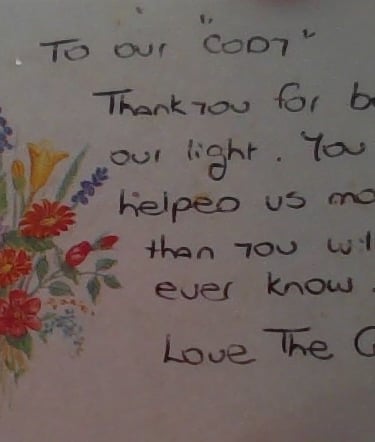 To our "CODY"
Thank you for b
our light. You
helped us mo
than you wil
ever know.
Love The G